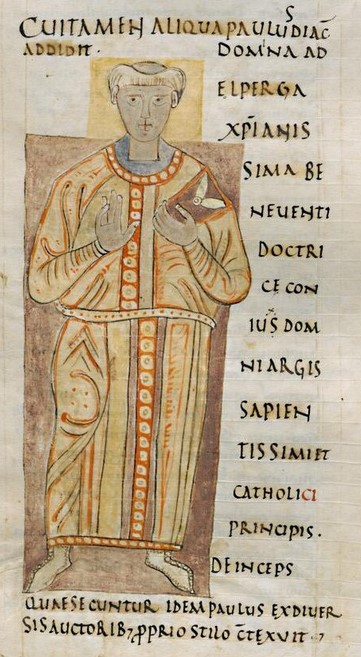 CUITAMEN ALIQUA PAULUS DIAC
ADDIDIT. DOMNA AD
ELPERGA
XPIANIS
SIMA BE
NEUENTI
DOCTRI
CE CON
IUS DOM
NI ARGIS
SAPIEN
TISSIMI ET
CATHOLICI
PRINCIPIS.
DEINCEPS
QUAE SECUNTUR IDEM PAULUS EX DIUER
SIS AUCTORIB; PROPRIO STILO CTEXUIT